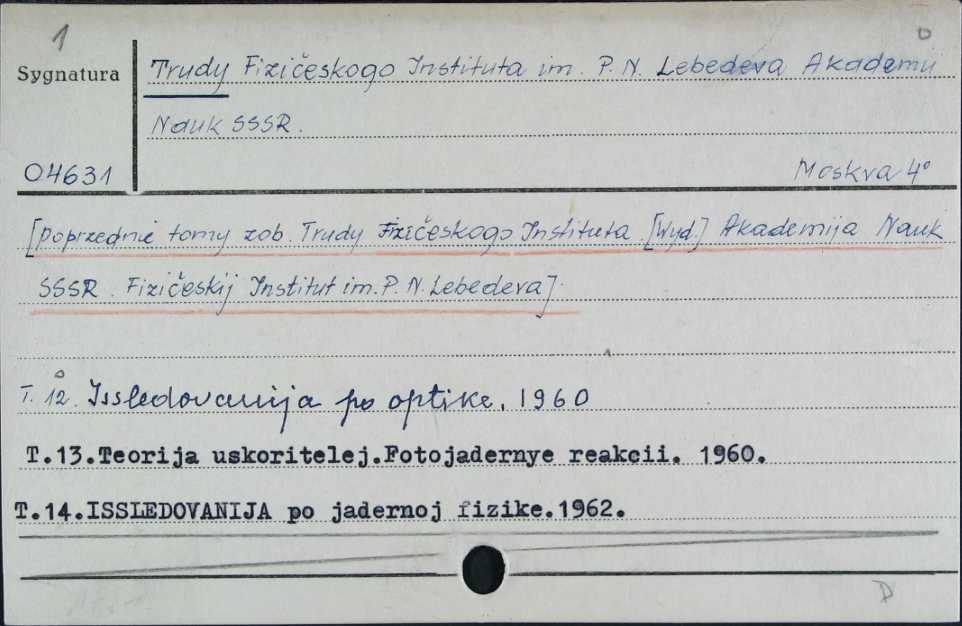 1
Sygnatura
Trudy Fizičeskogo Instituta im. P. N. Lebedeva Akademii
Nauk SSSR.
04631
Moskva 4°
[Poprzednie tomy zob. Trudy Fizičeskogo Instituta. [Wyd.] Akademija Nauk
SSSR. Fizičeskij Institut im. P. N. Lebedeva].
T. 12. Issledovanija po optike. 1960
T.13.Teorija uskoritelej.Fotojadernye reakcii. 1960.
T.14.ISSLEDOVANIJA po jadernoj fizike.1962.
D